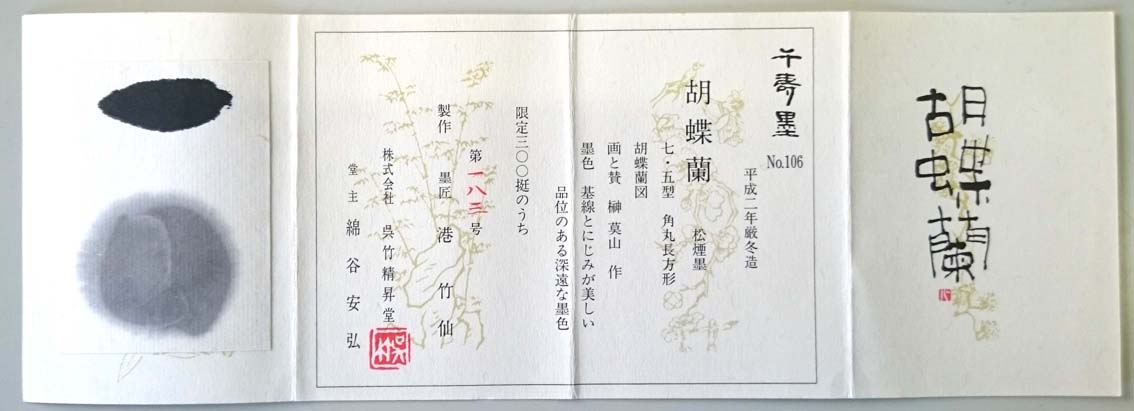 胡蝶蘭
千寿墨
No.106
平成二年厳冬造
胡蝶蘭
松煙墨
七・五型 角丸長方形
胡蝶蘭図
画と賛 榊莫山 作
墨色 基線とにじみが美しい
品位のある深遠な墨色
限定三〇〇挺のうち
第一八三号
製作 墨匠 港竹仙
株式会社 呉竹精昇堂
堂主 綿谷安弘
呉竹